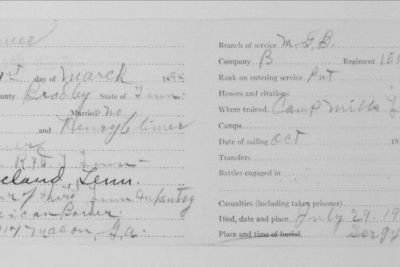 day of March 1894
County Bradley State of Tenn.
Married? no
and Henry Climer
R.F.D. 7 Tenn
eland, Tenn.
Tenn Infantry
ican Border
Macon, Ga.
Branch of service M.G.B.
Company B Regiment
Rank on entering service Pvt
Honors and citations
Where trained Camp Mills
Camps
Date of sailing Oct 19
Transfers
Battles engaged in
Casualties (including taken prisoner)
Died, date and place July 29, 19
Place and time of burial